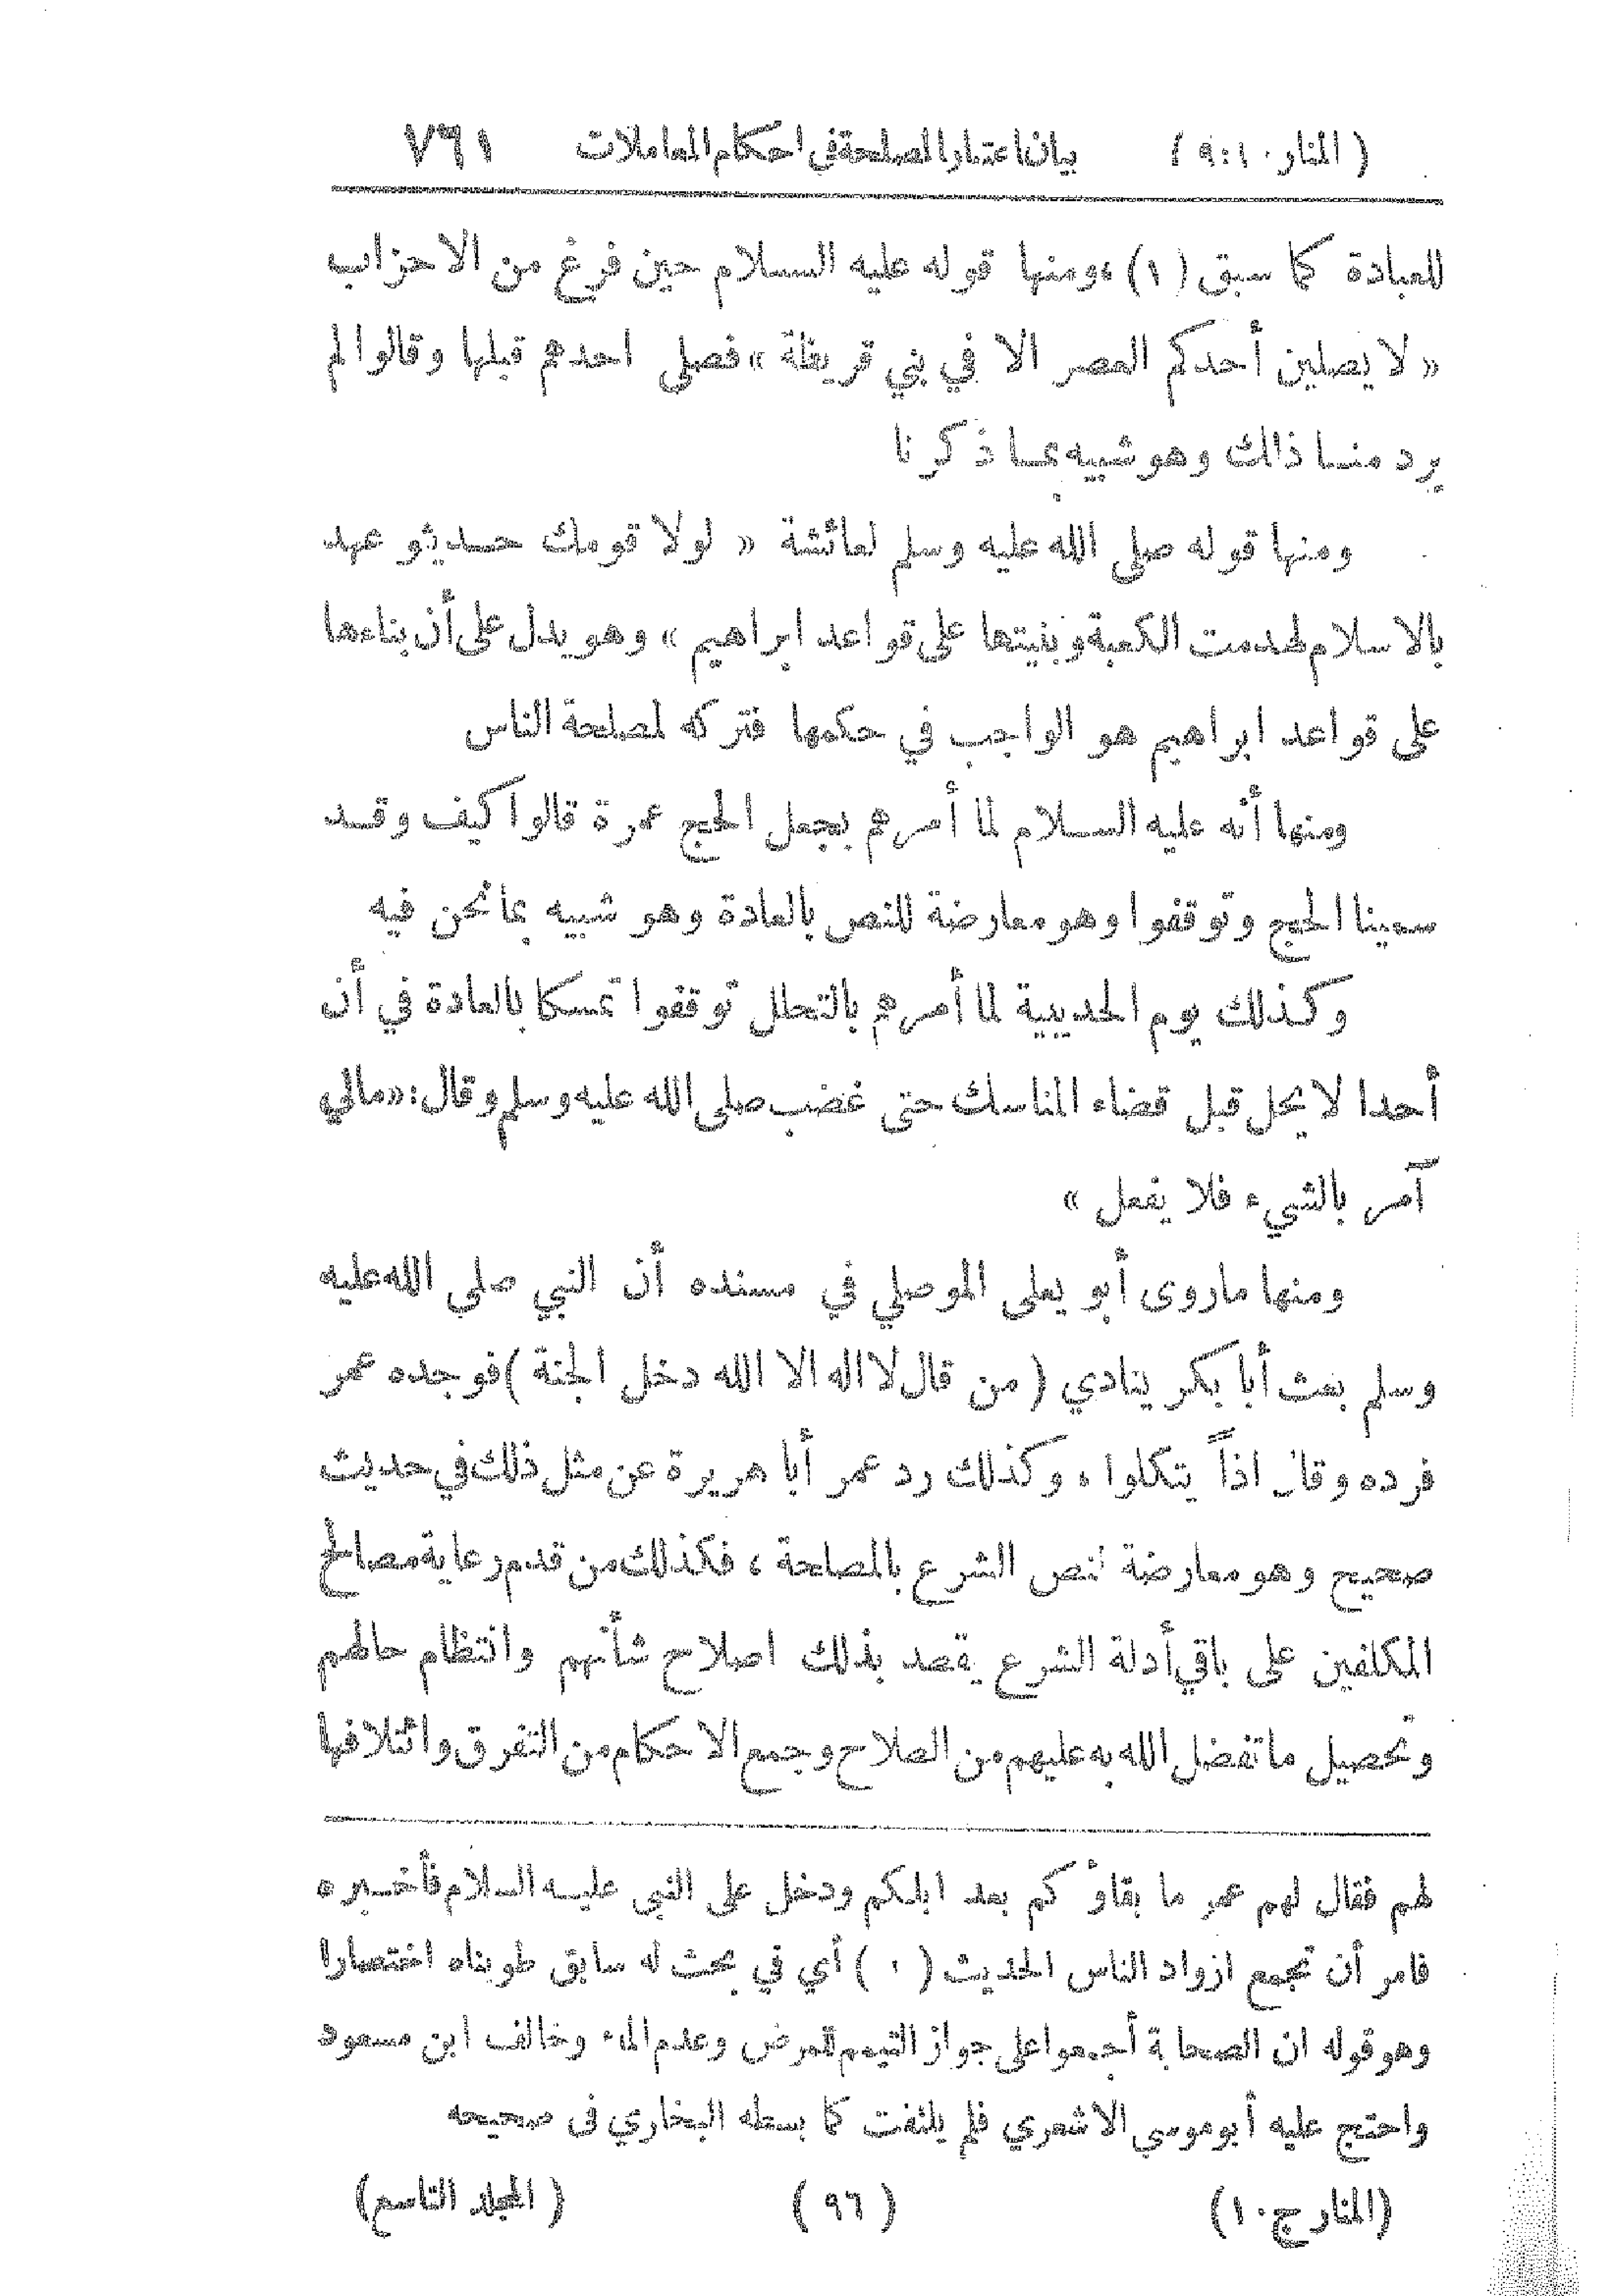 (المنار ١٠ : ٩) بيان اعتبار المصلحة في احكام المعاملات ٧٦١
للعبادة كما سبق (١) ، ومنها قوله عليه السلام حين فرغ من الاحزاب
« لا يصلين أحدكم العصر الا في بني قريظة » فصلى احدهم قبلها وقالوا لم
يرد منا ذلك وهو شبيه بما ذكرنا
ومنها قوله صلى الله عليه وسلم لعائشة « لولا قومك حديثو عهد
بالاسلام لهدمت الكعبة وبنيتها على قواعد ابراهيم » وهو يدل على أن بناءها
على قواعد ابراهيم هو الواجب في حكمها فتركه لمصلحة الناس
ومنها أنه عليه السلام لما أمرهم بجعل الحج عمرة قالوا كيف وقد
سمينا الحج وتوقفوا وهو معارضة للنص بالعادة وهو شبيه بما نحن فيه
وكذلك يوم الحديبية لما أمرهم بالتحلل توقفوا تمسكا بالعادة في أن
أحدا لا يحل قبل قضاء المناسك حتى غضب صلى الله عليه وسلم وقال : « مالي
آمر بالشيء فلا يفعل »
ومنها ماروى أبو يعلى الموصلي في مسنده أن النبي صلى الله عليه
وسلم بعث أبا بكر ينادي (من قال لا اله الا الله دخل الجنة) فوجده عمر
فرده وقال اذاً يتكلوا ، وكذلك رد عمر أبا هريرة عن مثل ذلك في حديث
صحيح وهو معارضة لنص الشرع بالمصلحة ، فكذلك من قدم رعاية مصالح
المكلفين على باقي أدلة الشرع يقصد بذلك اصلاح شأنهم وانتظام حالهم
وتحصيل ما تفضل الله به عليهم من الصلاح وجمع الاحكام من التفرق وائتلافها
لهم فقال لهم عمر ما بقاؤكم بعد ابلكم ودخل على النبي عليه السلام فأخبره
فامر أن تجمع ازواد الناس الحديث (١) أي في بحث له سابق طويناه اختصارا
وهو قوله ان الصحابة أجمعوا على جواز التيمم للمرض وعدم الماء وخالف ابن مسعود
واحتج عليه أبو موسى الاشعري فلم يلتفت كما بسطه البخاري في صحيحه
(المنار ج ١٠) (٩٦) (المجلد التاسع)